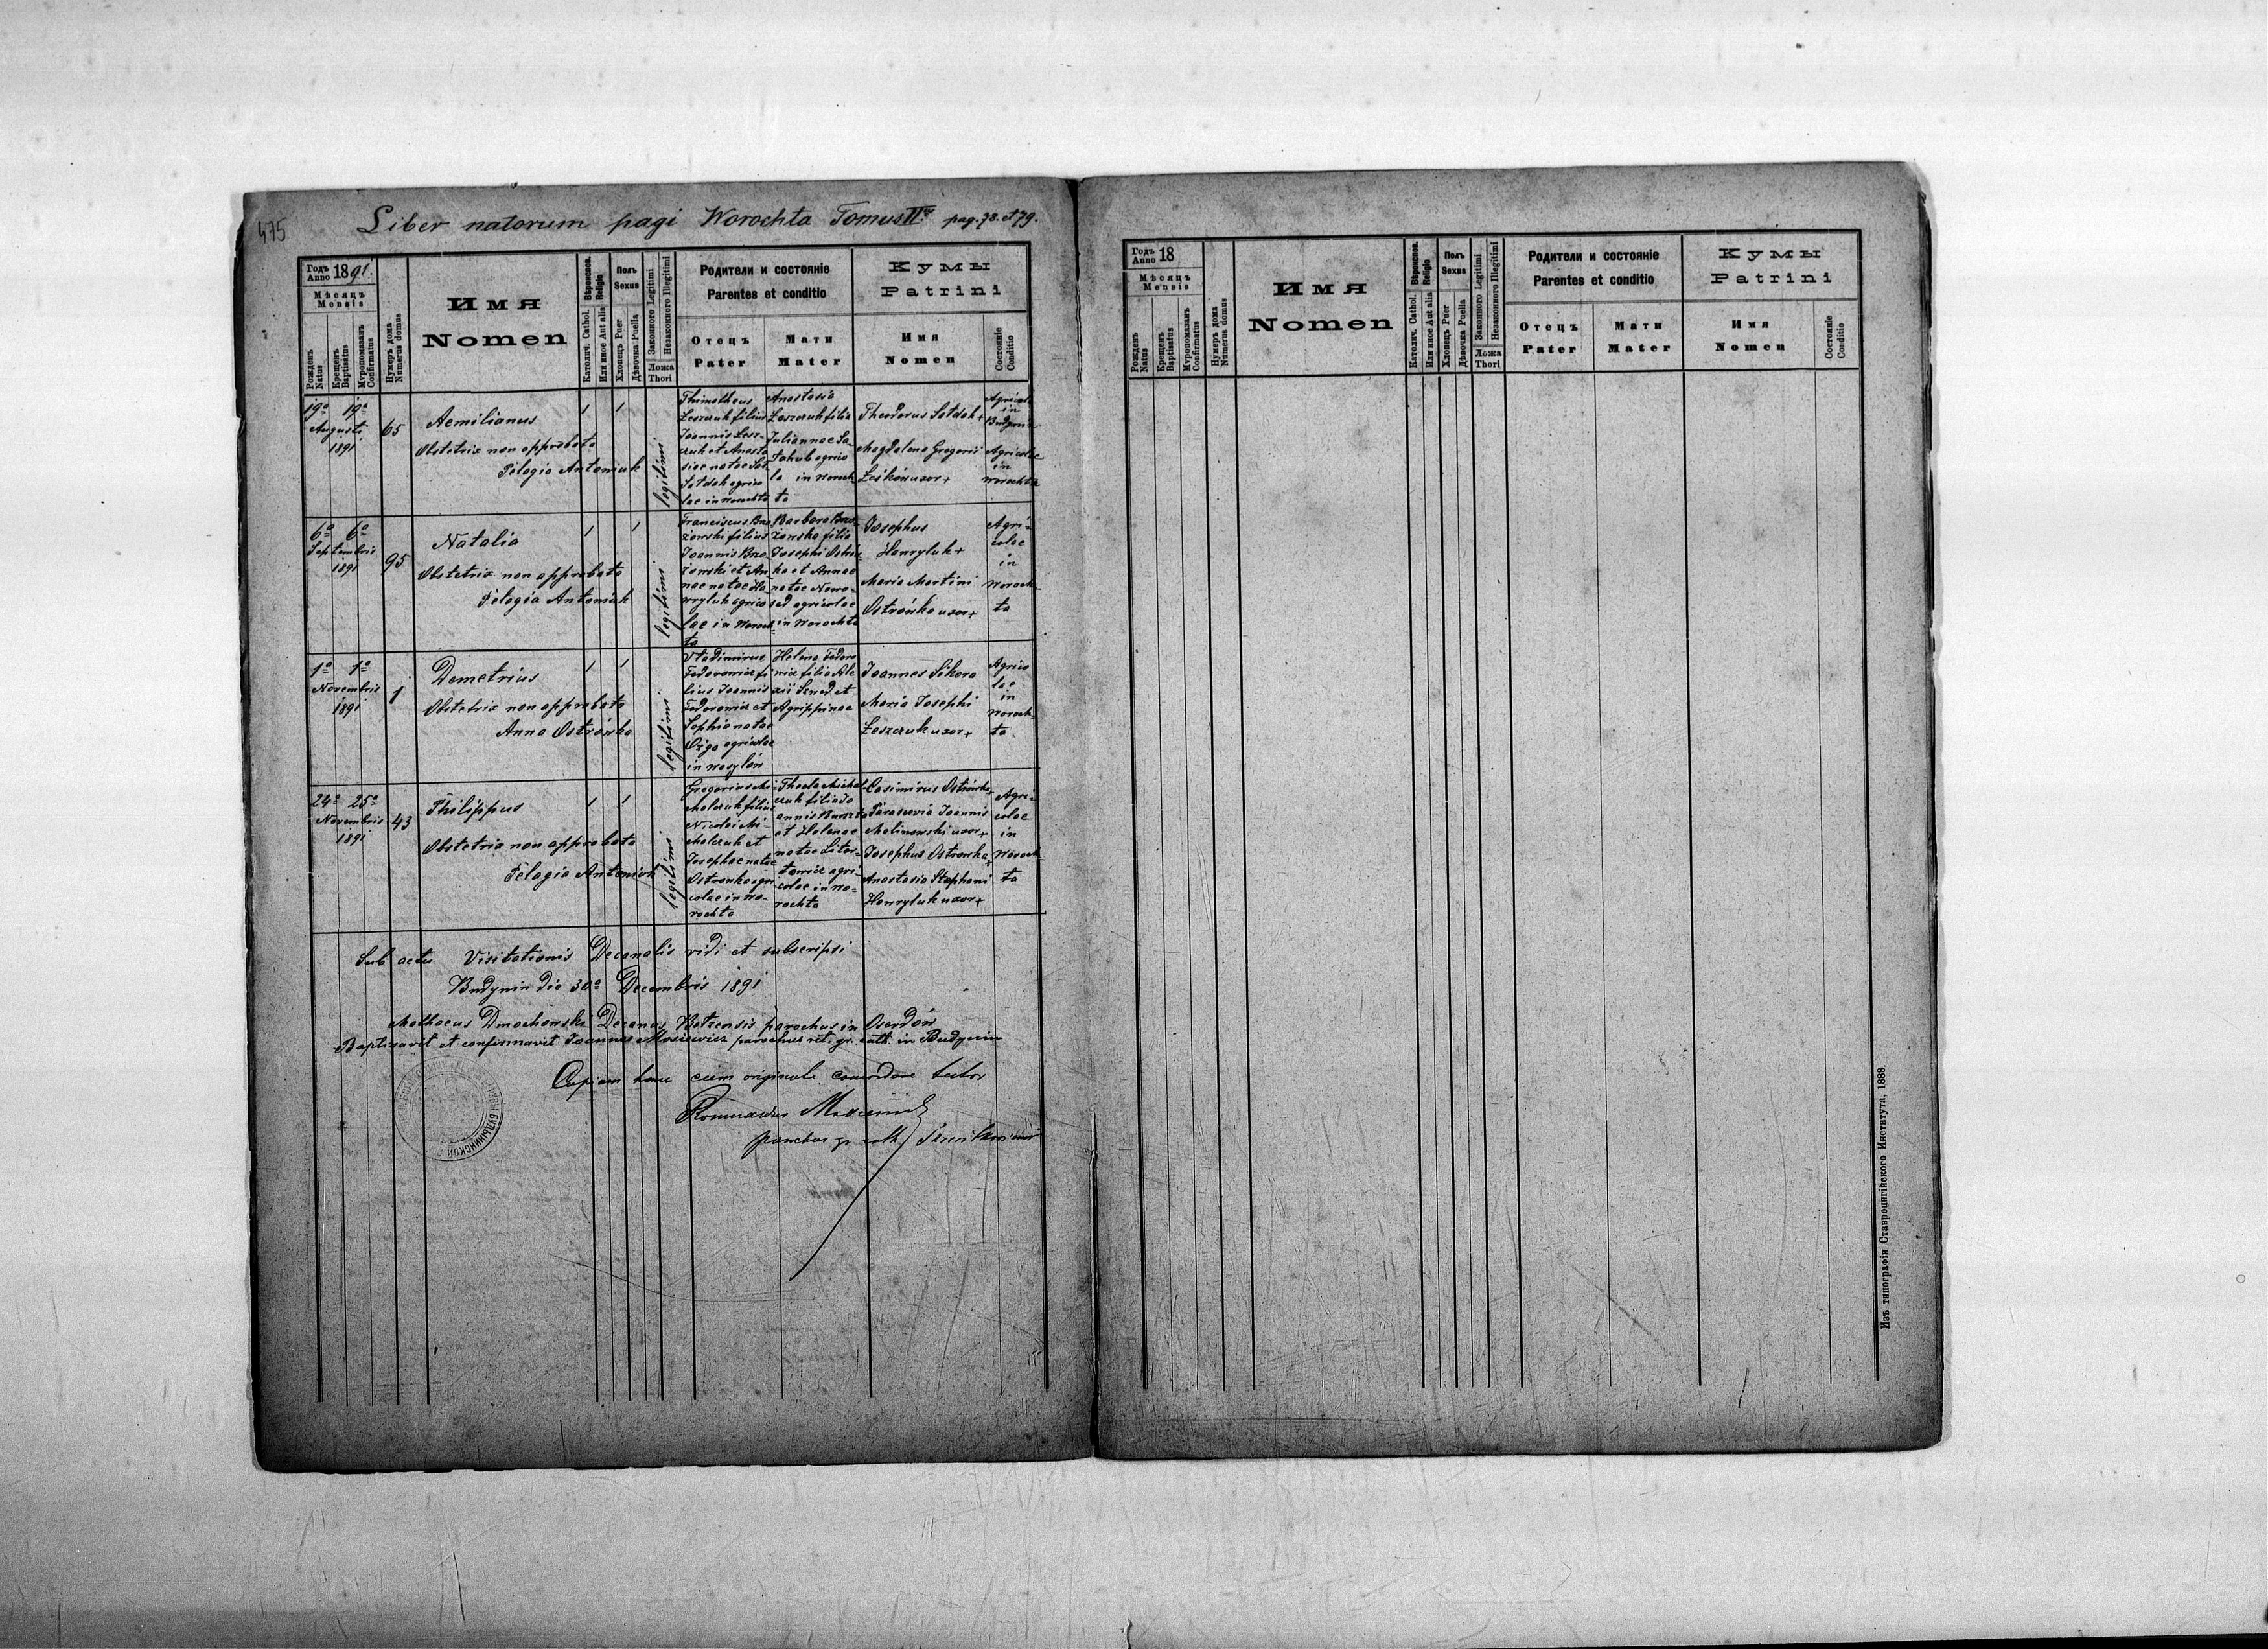 475
Liber natorum pagi Worochta Tomus II pag. 78. et 79.
Годъ Anno 1891.
Мѣсяцъ
Mensis
Рожденъ
Natus
Крещенъ
Baptisatus
Мѵропомазанъ
Confirmatus
Нумеръ дома
Numerus domus
Имя
Nomen
Вѣроиспов.
Religio
Католич. Cathol.
Или иное Aut alia
Полъ
Sexus
Хлопецъ Puer
Дѣвочка Puella
Законного Legitimi
Незаконного Illegitimi
Ложа
Thori
Родители и состояніе
Parentes et conditio
Отецъ
Pater
Мати
Mater
Кумы
Patrini
Имя
Nomen
Состояніе
Conditio
19a 19a
Augusti
1891
65
Aemilianus
Obstetrix non approbata
Pelagia Antoniuk
1 1
legitimi
Thimotheus
Leszczuk filius
Joannis Lesz-
czuk et Anasta
siae natae
Sołdak agrico
lae in Worochta
Anastasia
Leszczuk filia
Juliannae
agrico
la in Woroch
ta
Theodorus Sołdak +
Magdalena Gregorii
uxor +
Agricola
in
Budynin
Agricolae
in
Worochta
6a 6a
Septembris
1891
95
Natalia
Obstetrix non approbata
Pelagia Antoniuk
1 1
legitimi
Franciscus Brzo
zowski filius
Joannis Brzo
zowski et An
nae natae Ha
wryluk agrico
lae in Woroch
ta
Barbara Brzo-
zowska filia
Josephi Ostrów
ka et Annae
natae Nowo-
sad agricolae
in Worochta
Josephus
Hawryluk +
Maria Martini
Ostrówka uxor +
Agri-
colae
in
Woroch
ta
1a 1a
Novembris
1891
1
Demetrius
Obstetrix non approbata
Anna Ostrówka
1 1
legitimi
Vladimirus
Fedorowicz fi
lius Joannis
Fedorowicz et
Sophia natae
agricolae
in Wasylów
Helena Fedoro
wicz filia Ale
xii Szwed et
Agrippinae
Joannes Sikora
Maria Josephi
Leszczuk uxor +
Agrico
lae
in
Woroch
ta
24a 25a
Novembris
1891
43
Philippus
Obstetrix non approbata
Pelagia Antoniuk
1 1
legitimi
Gregorius Mi-
chalczuk filius
Nicolai Mi-
chalczuk et
Josephae natae
Ostrowka agri
colae in Wo-
rochta
Thecla Michal
czuk filia Jo
annis
et Helenae
natae
agri-
colae in Wo-
rochta
Casimirus Ostrówka
Parascevia Joannis
Malinowski uxor +
Josephus Ostrowka +
Anastasia Stephani
Hawryluk uxor +
Agri-
colae
in
Woroch
ta
Sub actu Visitationis Decanalis vidi et subscripsi
Budynin die 30a Decembris 1891
Mathaeus Dmochowski Decanus Bełzensis parochus in Oserdów
Baptisavit et confirmavit Joannes Mosiewicz parochus rit. gr. cath. in Budynin
Copiam hanc cum originali concordare testor
parochus gr cath
БУДЫНИНСКОЙ
Годъ Anno 18
Мѣсяцъ
Mensis
Рожденъ
Natus
Крещенъ
Baptisatus
Мѵропомазанъ
Confirmatus
Нумеръ дома
Numerus domus
Имя
Nomen
Вѣроиспов.
Religio
Католич. Cathol.
Или иное Aut alia
Полъ
Sexus
Хлопецъ Puer
Дѣвочка Puella
Законного Legitimi
Незаконного Illegitimi
Ложа
Thori
Родители и состояніе
Parentes et conditio
Отецъ
Pater
Мати
Mater
Кумы
Patrini
Имя
Nomen
Состояніе
Conditio
Изъ типографіи Ставропигійского Института, 1888.